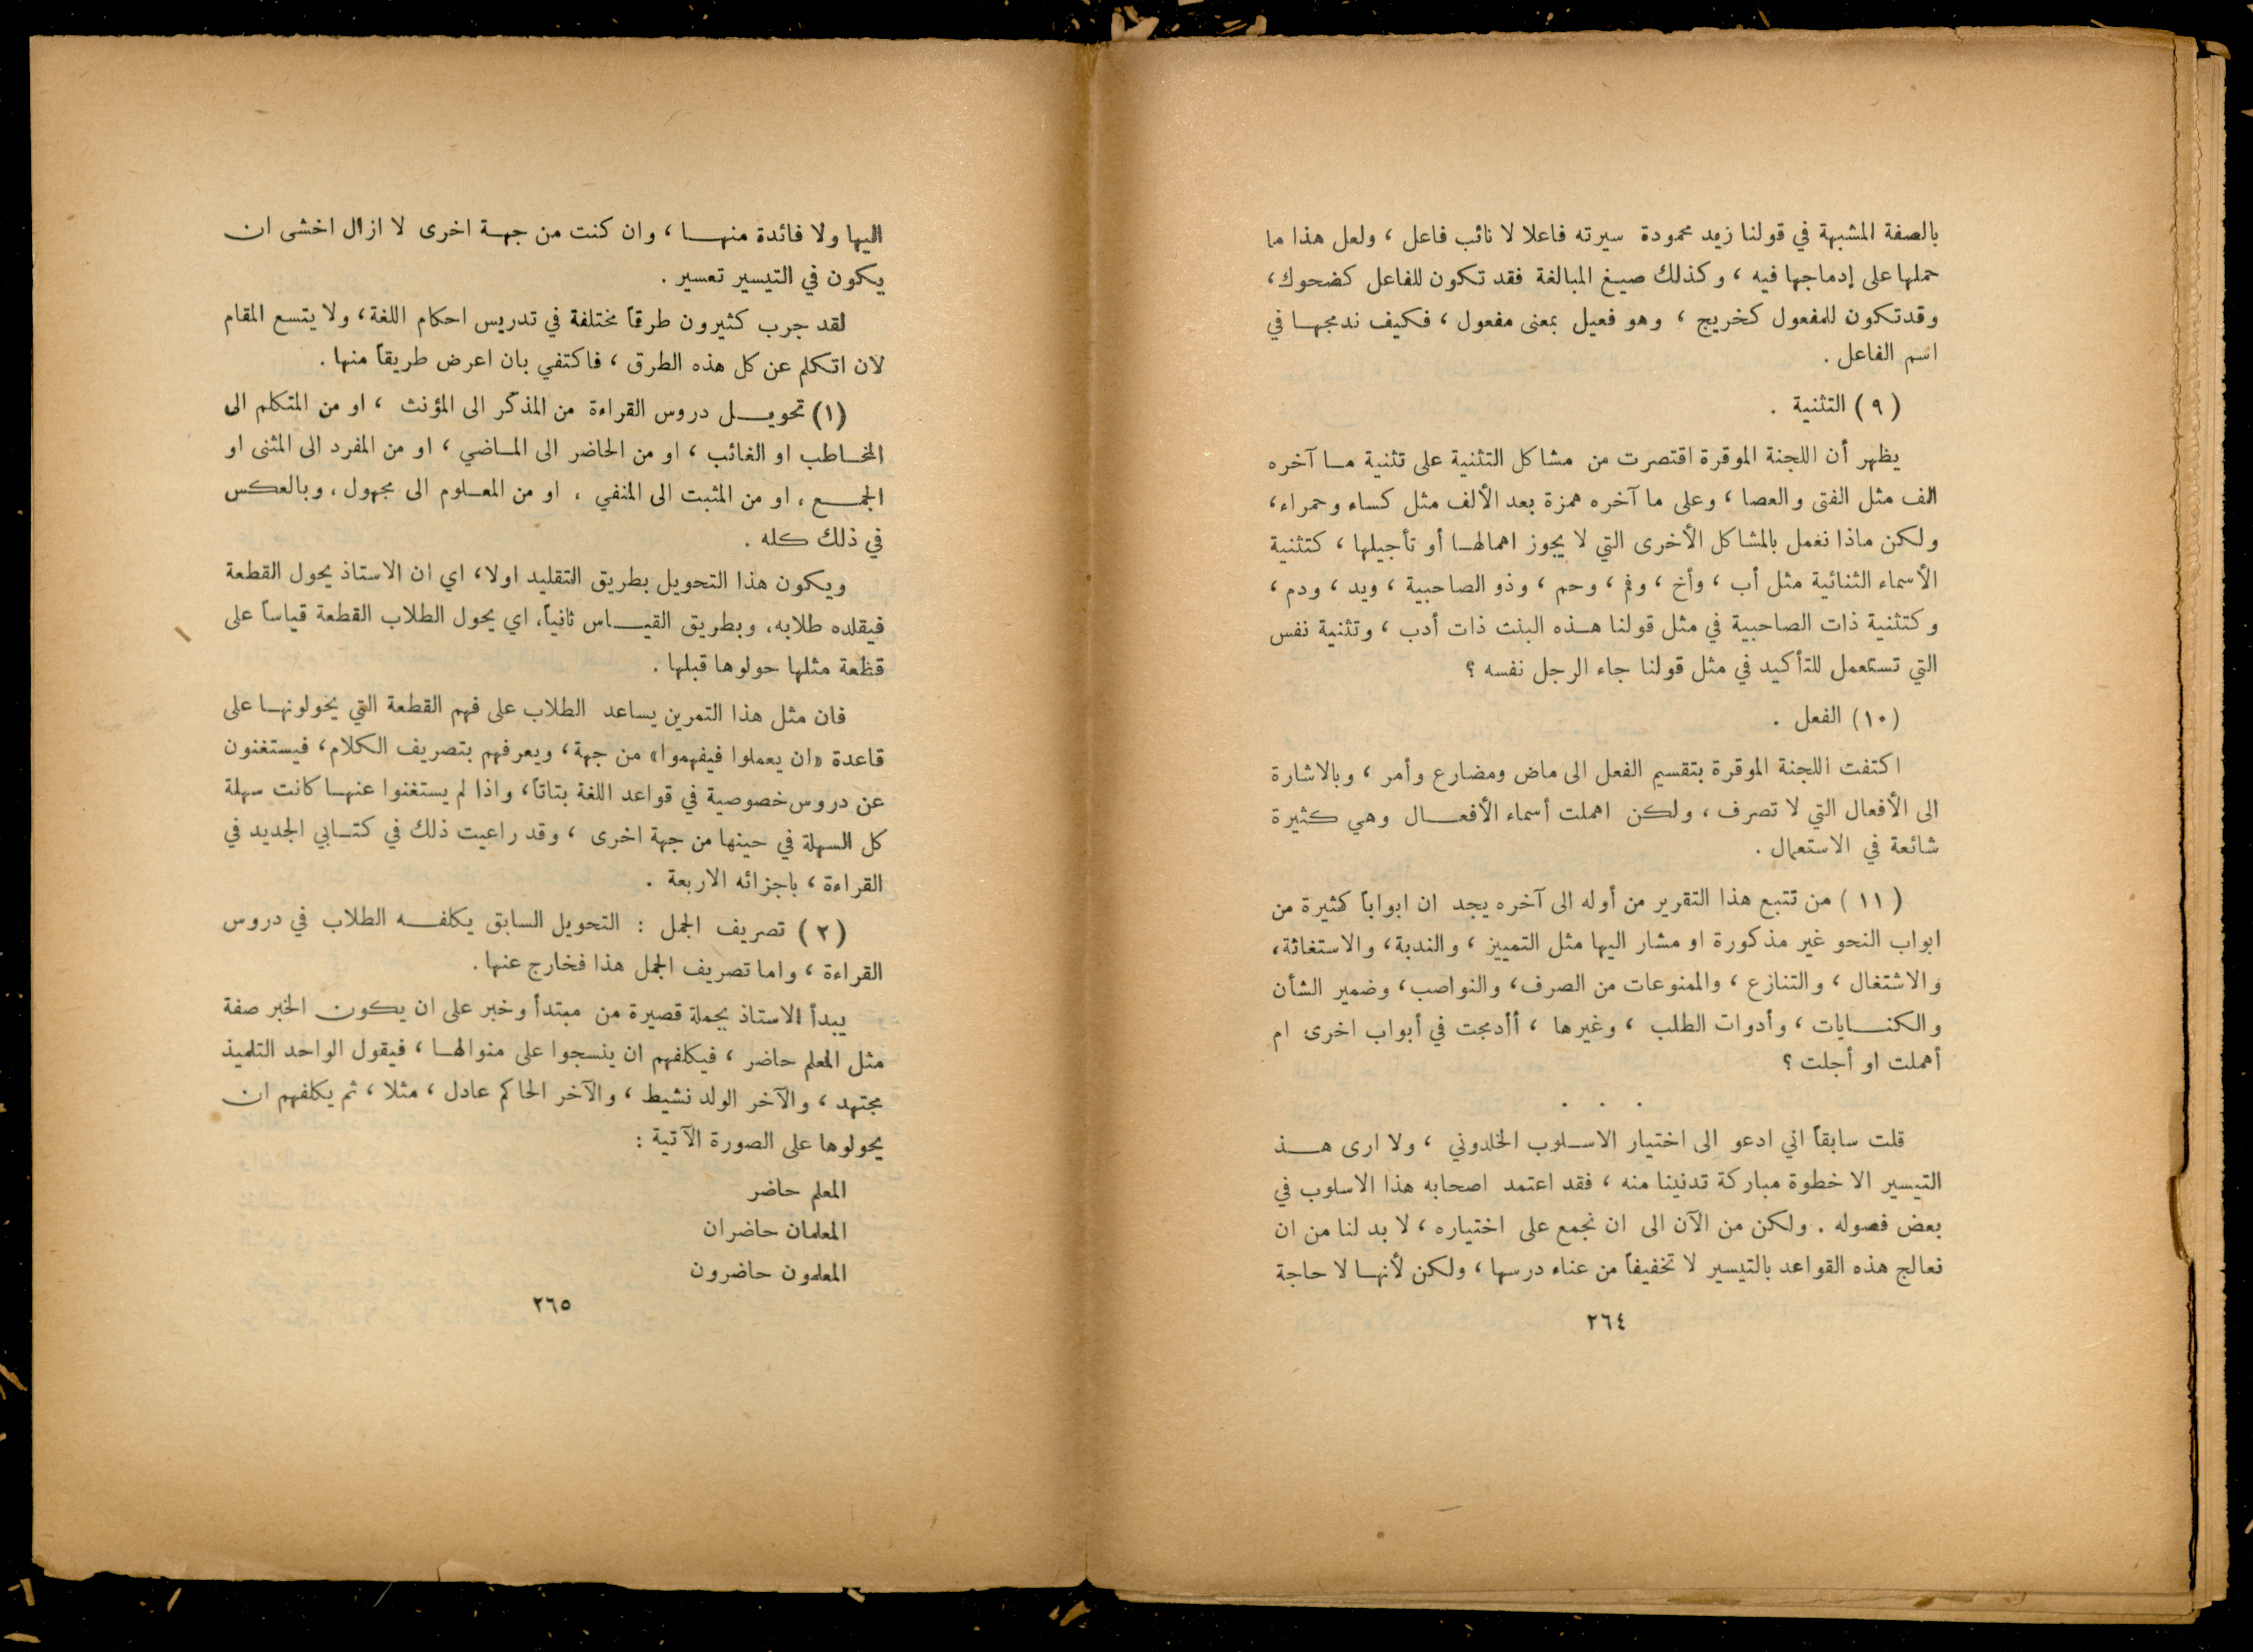 بالصفة المشبهة في قولنا زيد محمودة سيرته فاعلا لا نائب فاعل ، ولعل هذا ما
حملها على إدماجها فيه ، وكذلك صيغ المبالغة فقد تكون للفاعل كضحوك ،
وقد تكون للمفعول كخريج ، وهو فعيل بمعنى مفعول ، فكيف ندمجهـا في
اسم الفاعل .
( ٩ ) التثنية .
يظهر أن اللجنة الموقرة اقتصرت من مشاكل التثنية على تثنية مـا آخره
الف مثل الفتى والعصا ، وعلى ما آخره همزة بعد الألف مثل كساء وحمراء ،
ولكن ماذا نعمل بالمشاكل الأخرى التي لا يجوز اهمالهـا أو تأجيلها ، كتثنية
الأسماء الثنائية مثل أب ، وأخ ، وفم ، وحم ، وذو الصاحبية ، ويد ، ودم ،
وكتثنية ذات الصاحبية في مثل قولنا هـذه البنت ذات أدب ، وتثنية نفس
التي تستعمل للتأكيد في مثل قولنا جاء الرجل نفسه ؟
(١٠) الفعل .
اكتفت اللجنة الموقرة بتقسيم الفعل الى ماض ومضارع وأمر ، وبالاشارة
الى الأفعال التي لا تصرف ، ولكن اهملت أسماء الأفعـال وهي كثيرة
شائعة في الاستعمال .
( ١١ ) من تتبع هذا التقرير من أوله الى آخره يجد ان ابواباً كثيرة من
ابواب النحو غير مذكورة او مشار اليها مثل التمييز ، والندبة ، والاستغاثة ،
والاشتغال ، والتنازع ، والممنوعات من الصرف ، والنواصب ، وضمير الشأن
والكنـايات ، وأدوات الطلب ، وغيرها ، أأدمجت في أبواب اخرى ام
أهملت او أجلت ؟
. . .
قلت سابقاً اني ادعو الى اختيار الاسـلوب الخلدوني ، ولا ارى هـذ
التيسير الا خطوة مباركة تدنينا منه ، فقد اعتمد اصحابه هذا الاسلوب في
بعض فصوله . ولكن من الآن الى ان نجمع على اختياره ، لا بد لنا من ان
نعالج هذه القواعد بالتيسير لا تخفيفاً من عناء درسها ، ولكن لأنهـا لا حاجة
٢٦٤
اليها ولا فائدة منهـا ، وان كنت من جهـة اخرى لا ازال اخشى ان
يكون في التيسير تعسير .
لقد جرب كثيرون طرقاً مختلفة في تدريس احكام اللغة ، ولا يتسع المقام
لان اتكلم عن كل هذه الطرق ، فاكتفي بان اعرض طريقاً منها .
(١) تحويـل دروس القراءة من المذكّر الى المؤنث ، او من المتكلم الى
المخـاطب او الغائب ، او من الحاضر الى المـاضي ، او من المفرد الى المثنى او
الجمـع ، او من المثبت الى المنفي ، او من المعـلوم الى مجهول ، وبالعكس
في ذلك كله .
ويكون هذا التحويل بطريق التقليد اولا ، اي ان الاستاذ يحول القطعة
فيقلده طلابه ، وبطريق القيـاس ثانياً ، اي يحول الطلاب القطعة قياساً على
قطعة مثلها حولوها قبلها .
فان مثل هذا التمرين يساعد الطلاب على فهم القطعة التي يحولونهـا على
قاعدة «ان يعملوا فيفهموا» من جهة ، ويعرفهم بتصريف الكلام ، فيستغنون
عن دروس خصوصية في قواعد اللغة بتاتاً ، واذا لم يستغنوا عنهـا كانت سهلة
كل السهلة في حينها من جهة اخرى ، وقد راعيت ذلك في كتـابي الجديد في
القراءة ، باجزائه الاربعة .
( ٢ ) تصريف الجمل : التحويل السابق يكلفـه الطلاب في دروس
القراءة ، واما تصريف الجمل هذا فخارج عنها .
يبدأ الاستاذ بجملة قصيرة من مبتدأ وخبر على ان يكون الخبر صفة
مثل المعلم حاضر ، فيكلفهم ان ينسجوا على منوالهـا ، فيقول الواحد التلميذ
مجتهد ، والآخر الولد نشيط ، والآخر الحاكم عادل ، مثلا ، ثم يكلفهم ان
يحولوها على الصورة الآتية :
المعلم حاضر
المعلمان حاضران
المعلمون حاضرون
٢٦٥